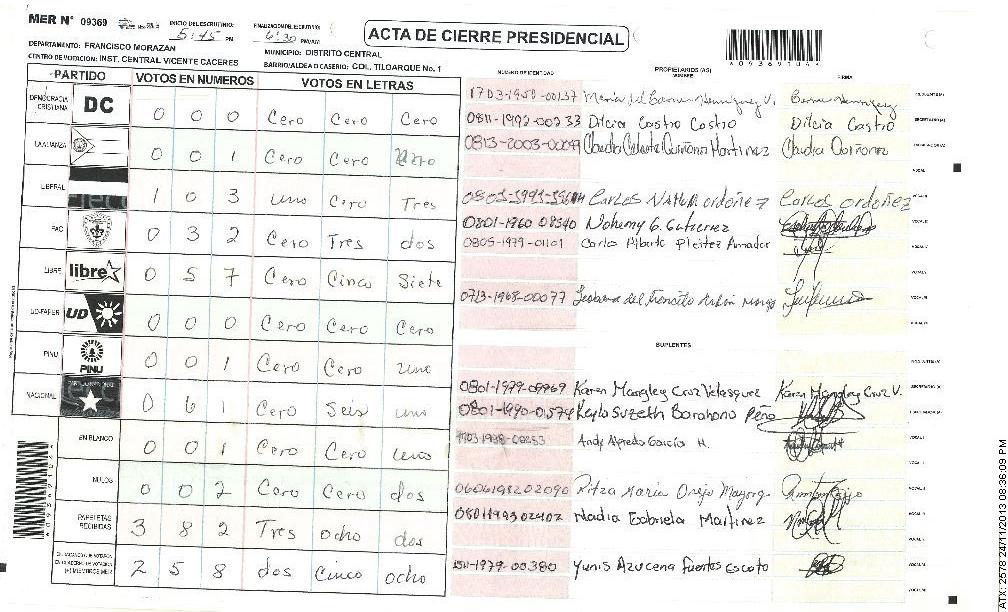 MER N° 09369
INICIO DEL ESCRUTINIO: 5:45 PM
FINALIZACION DEL ESCRUTINIO: 6:30 PM/AM
ACTA DE CIERRE PRESIDENCIAL
DEPARTAMENTO: FRANCISCO MORAZAN
MUNICIPIO: DISTRITO CENTRAL
CENTRO DE VOTACION: INST. CENTRAL VICENTE CACERES
BARRIO/ALDEA O CASERIO: COL. TILOARQUE No. 1
PARTIDO VOTOS EN NUMEROS VOTOS EN LETRAS
NUMERO DE IDENTIDAD PROPIETARIOS (AS) NOMBRE FIRMA
DEMOCRACIA CRISTIANA DC 0 0 0 Cero Cero Cero
LA ALIANZA 0 0 1 Cero Cero Uno
LIBERAL 1 0 3 uno Cero Tres
FAC 0 3 2 Cero Tres dos
LIBRE libre 0 5 7 Cero Cinco Siete
UD-FAPER UD 0 0 0 Cero Cero Cero
PINU PINU 0 0 1 Cero Cero uno
NACIONAL 0 6 1 Cero Seis uno
EN BLANCO 0 0 1 Cero Cero uno
NULOS 0 0 2 Cero Cero dos
PAPELETAS RECIBIDAS 3 8 2 Tres ocho dos
2 5 8 dos Cinco ocho
1703-1950-00137 Maria del Carmen Henriquez V. Carmen Henriquez
0811-1992-00233 Dilcia Castro Castro Dilcia Castro
0813-2003-00049 Claudia Celeste Quiñonez Martinez Claudia Quiñonez
Carlos ordoñez Carlos ordoñez
0801-1960 08540 Nohemy G. Gutierrez
0805-1979-01101 Carlos Alberto Pleitez Amador
0713-1968-00077
SUPLENTES
0801-1979-09769 Karen Mangley Cruz Velasquez Karen Mangley Cruz V.
0801-1990-01574 Keyla Suzeth Barahona Peña
Andy Alfredo Garcia H.
0606198202090 Ritza Maria
0801199302402 Nadia Gabriela Martinez
1511-1979-00380 Yunis Azucena Fuentes Escoto
ATX: 2578 24/11/2013 08:36:09 PM